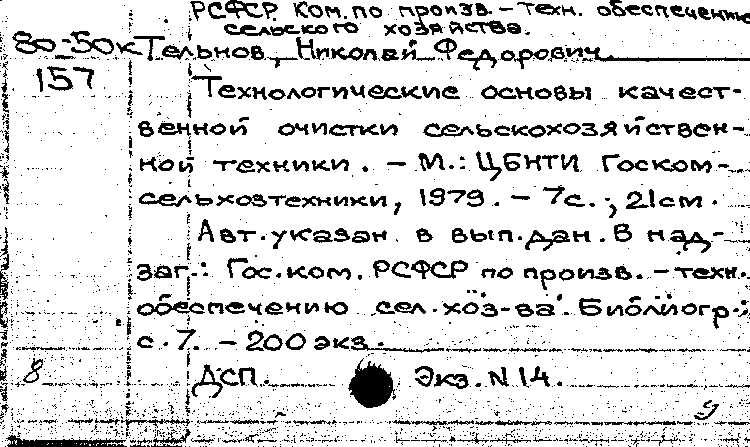 РСФСР Ком. по произв. - техн. обеспечению
сельского хозяйства.
80-50к Тельнов, Николай Федорович.
157 Технологические основы качест-
венной очистки сельскохозяйствен-
ной техники. - М.: ЦБНТИ Госком-
сельхозтехники, 1979. - 7с.; 21см.
Авт. указан в вып. дан. В над-
заг.: Гос. ком. РСФСР по произв. - техн.
обеспечению сел. хоз-ва. Библиогр.:
с. 7. - 200 экз.
8 ДСП. Экз. N 14.